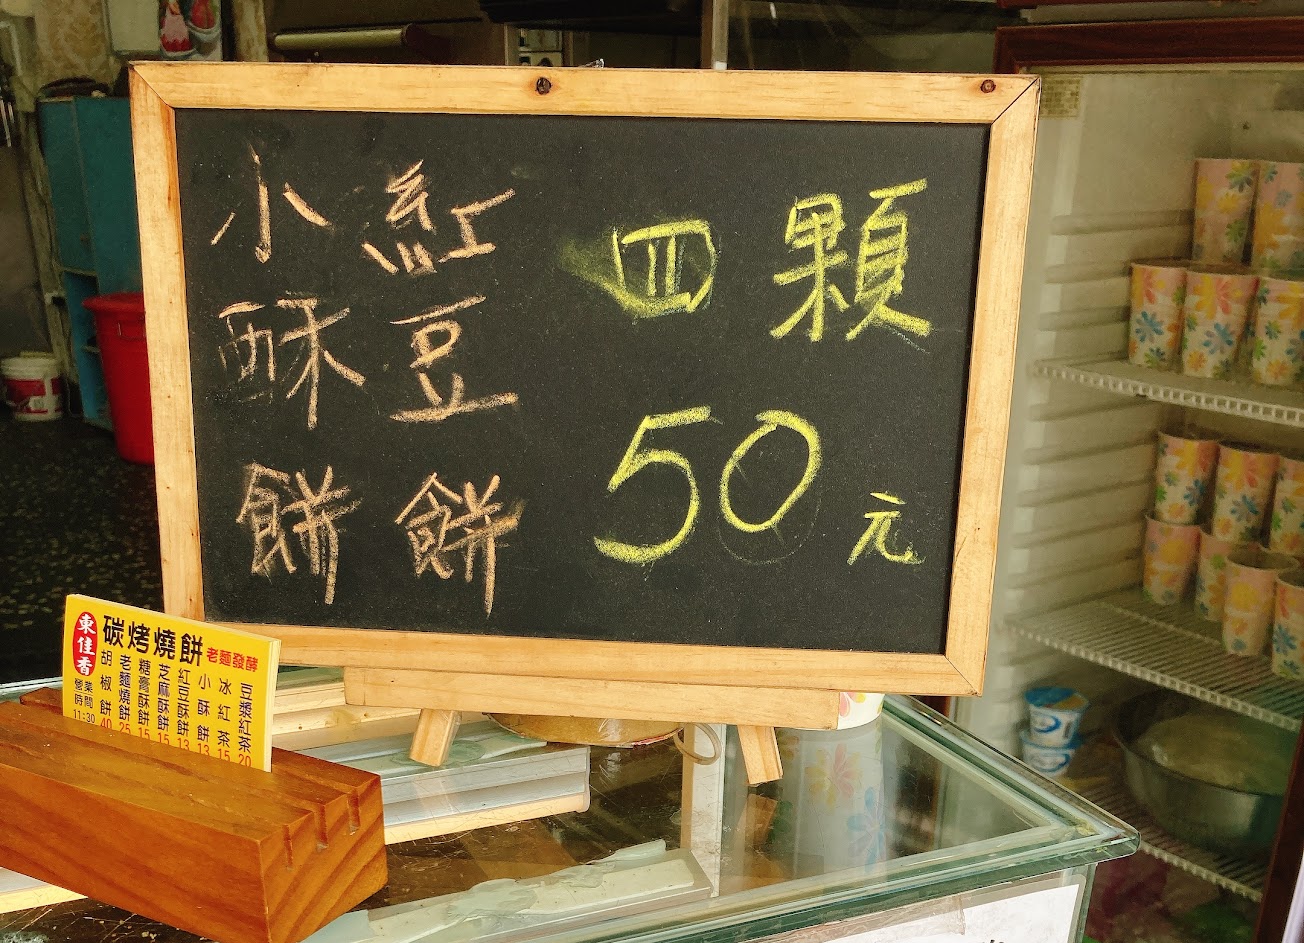 小酥餅
紅豆餅
四顆
50元
東佳香
碳烤燒餅
老麵發酵
營業時間
11:30
胡椒餅 40
老麵燒餅 25
糖膏酥餅 15
芝麻酥餅 15
紅豆酥餅 13
小酥餅 13
冰紅茶 15
豆漿紅茶 20